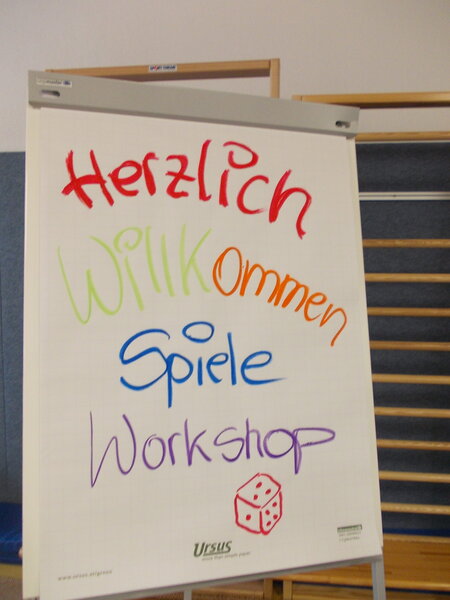 Herzlich
Willkommen
Spiele
Workshop
Ursus
www.ursus.at/genius